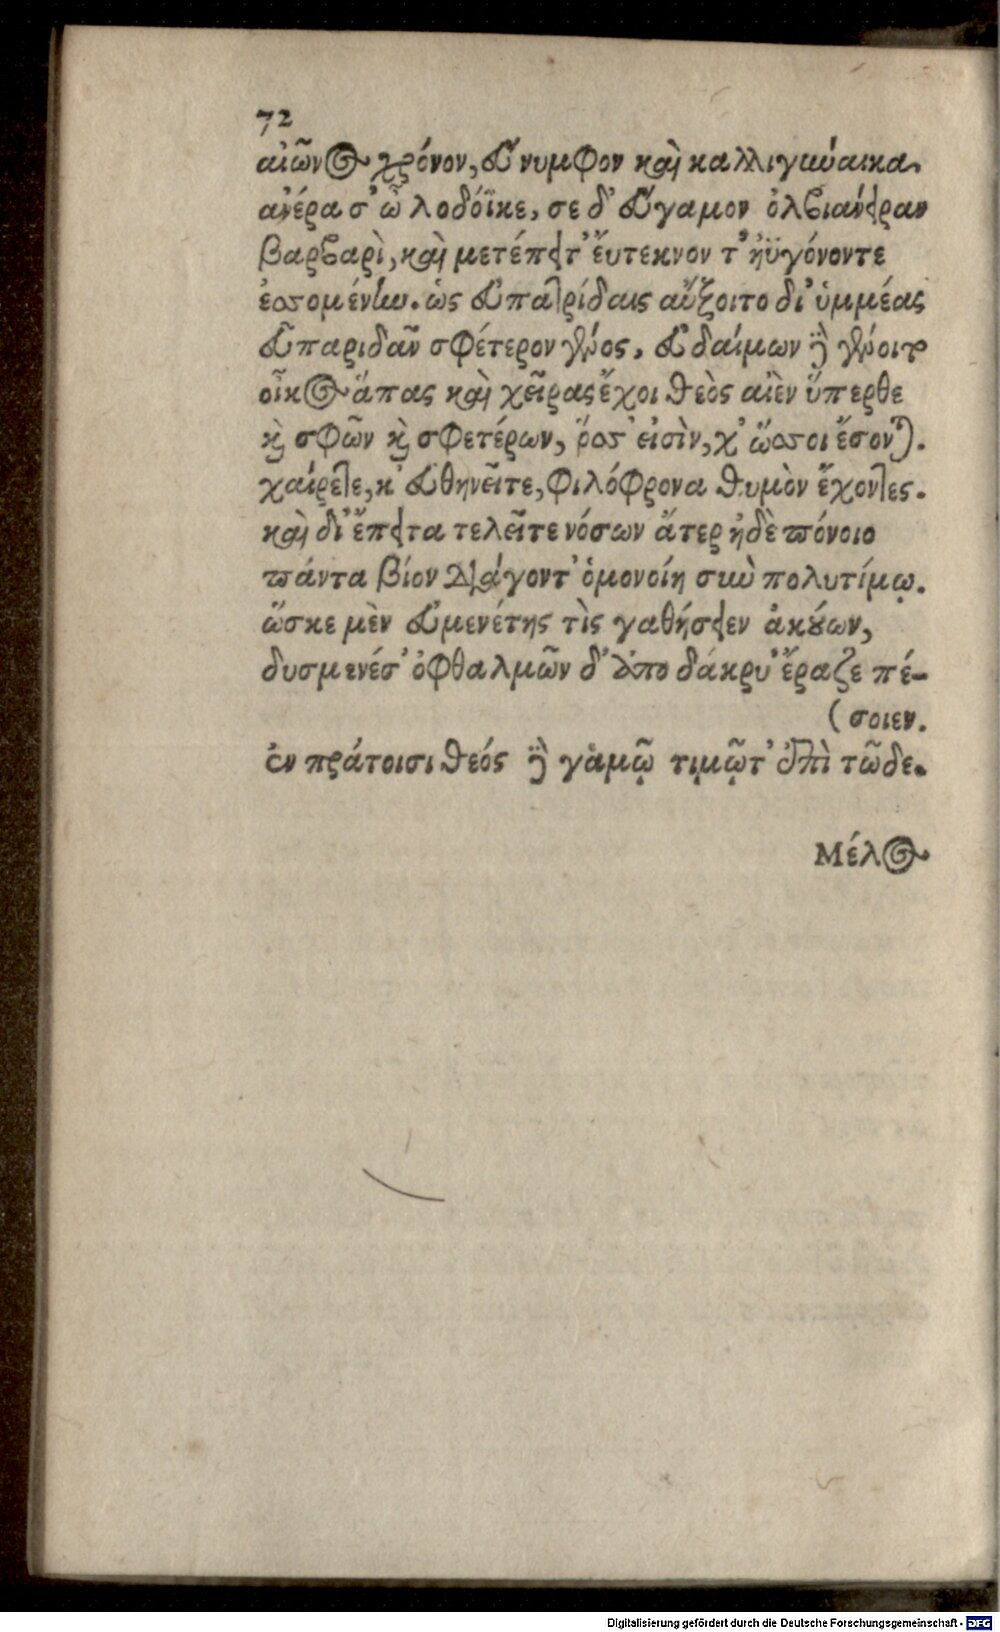 72
αἰῶνος χρόνον, εὔνυμφον καὶ καλλιγύναικα.
ἀνέρα σ' ὦ λοδόϊκε, σε δ' εὔγαμον ὀλβιάνειραν
βαρβαρὶ, καὶ μετέπειτ' ἔυτεκνον τ' ἠϋγόνοντε
ἐσσομένην. ὡς εὐπατρίδαις αὔξοιτο δι' ὑμμέας
εὐπαριδᾶν σφέτερον γένος, εὐδαίμων δὲ γένοιτο
οἶκος ἅπας καὶ χεῖρας ἔχοι θεὸς αἰὲν ὕπερθε
καὶ σφῶν καὶ σφετέρων, ὅσσ' εἰσὶν, χ' ὥσσοι ἔσονται.
χαίρετε, κ' εὐθηνεῖτε, φιλόφρονα θυμὸν ἔχοντες.
καὶ δι' ἔπειτα τελεῖτε νόσων ἄτερ ἠδὲ πόνοιο
πάντα βίον διάγοντ' ὁμονοίη σὺν πολυτίμῳ.
ὥσκε μὲν εὐμενέτης τὶς γαθήσειεν ἀκούων,
δυσμενέσ' ὀφθαλμῶν δ' ἀπο δάκρυ' ἔραζε πέ-
(σοιεν.
ἐν πράτοισι θεός δὲ γάμῳ τιμῷτ' ἐπὶ τῶδε.
Μέλος
Digitalisierung gefördert durch die Deutsche Forschungsgemeinschaft - DFG